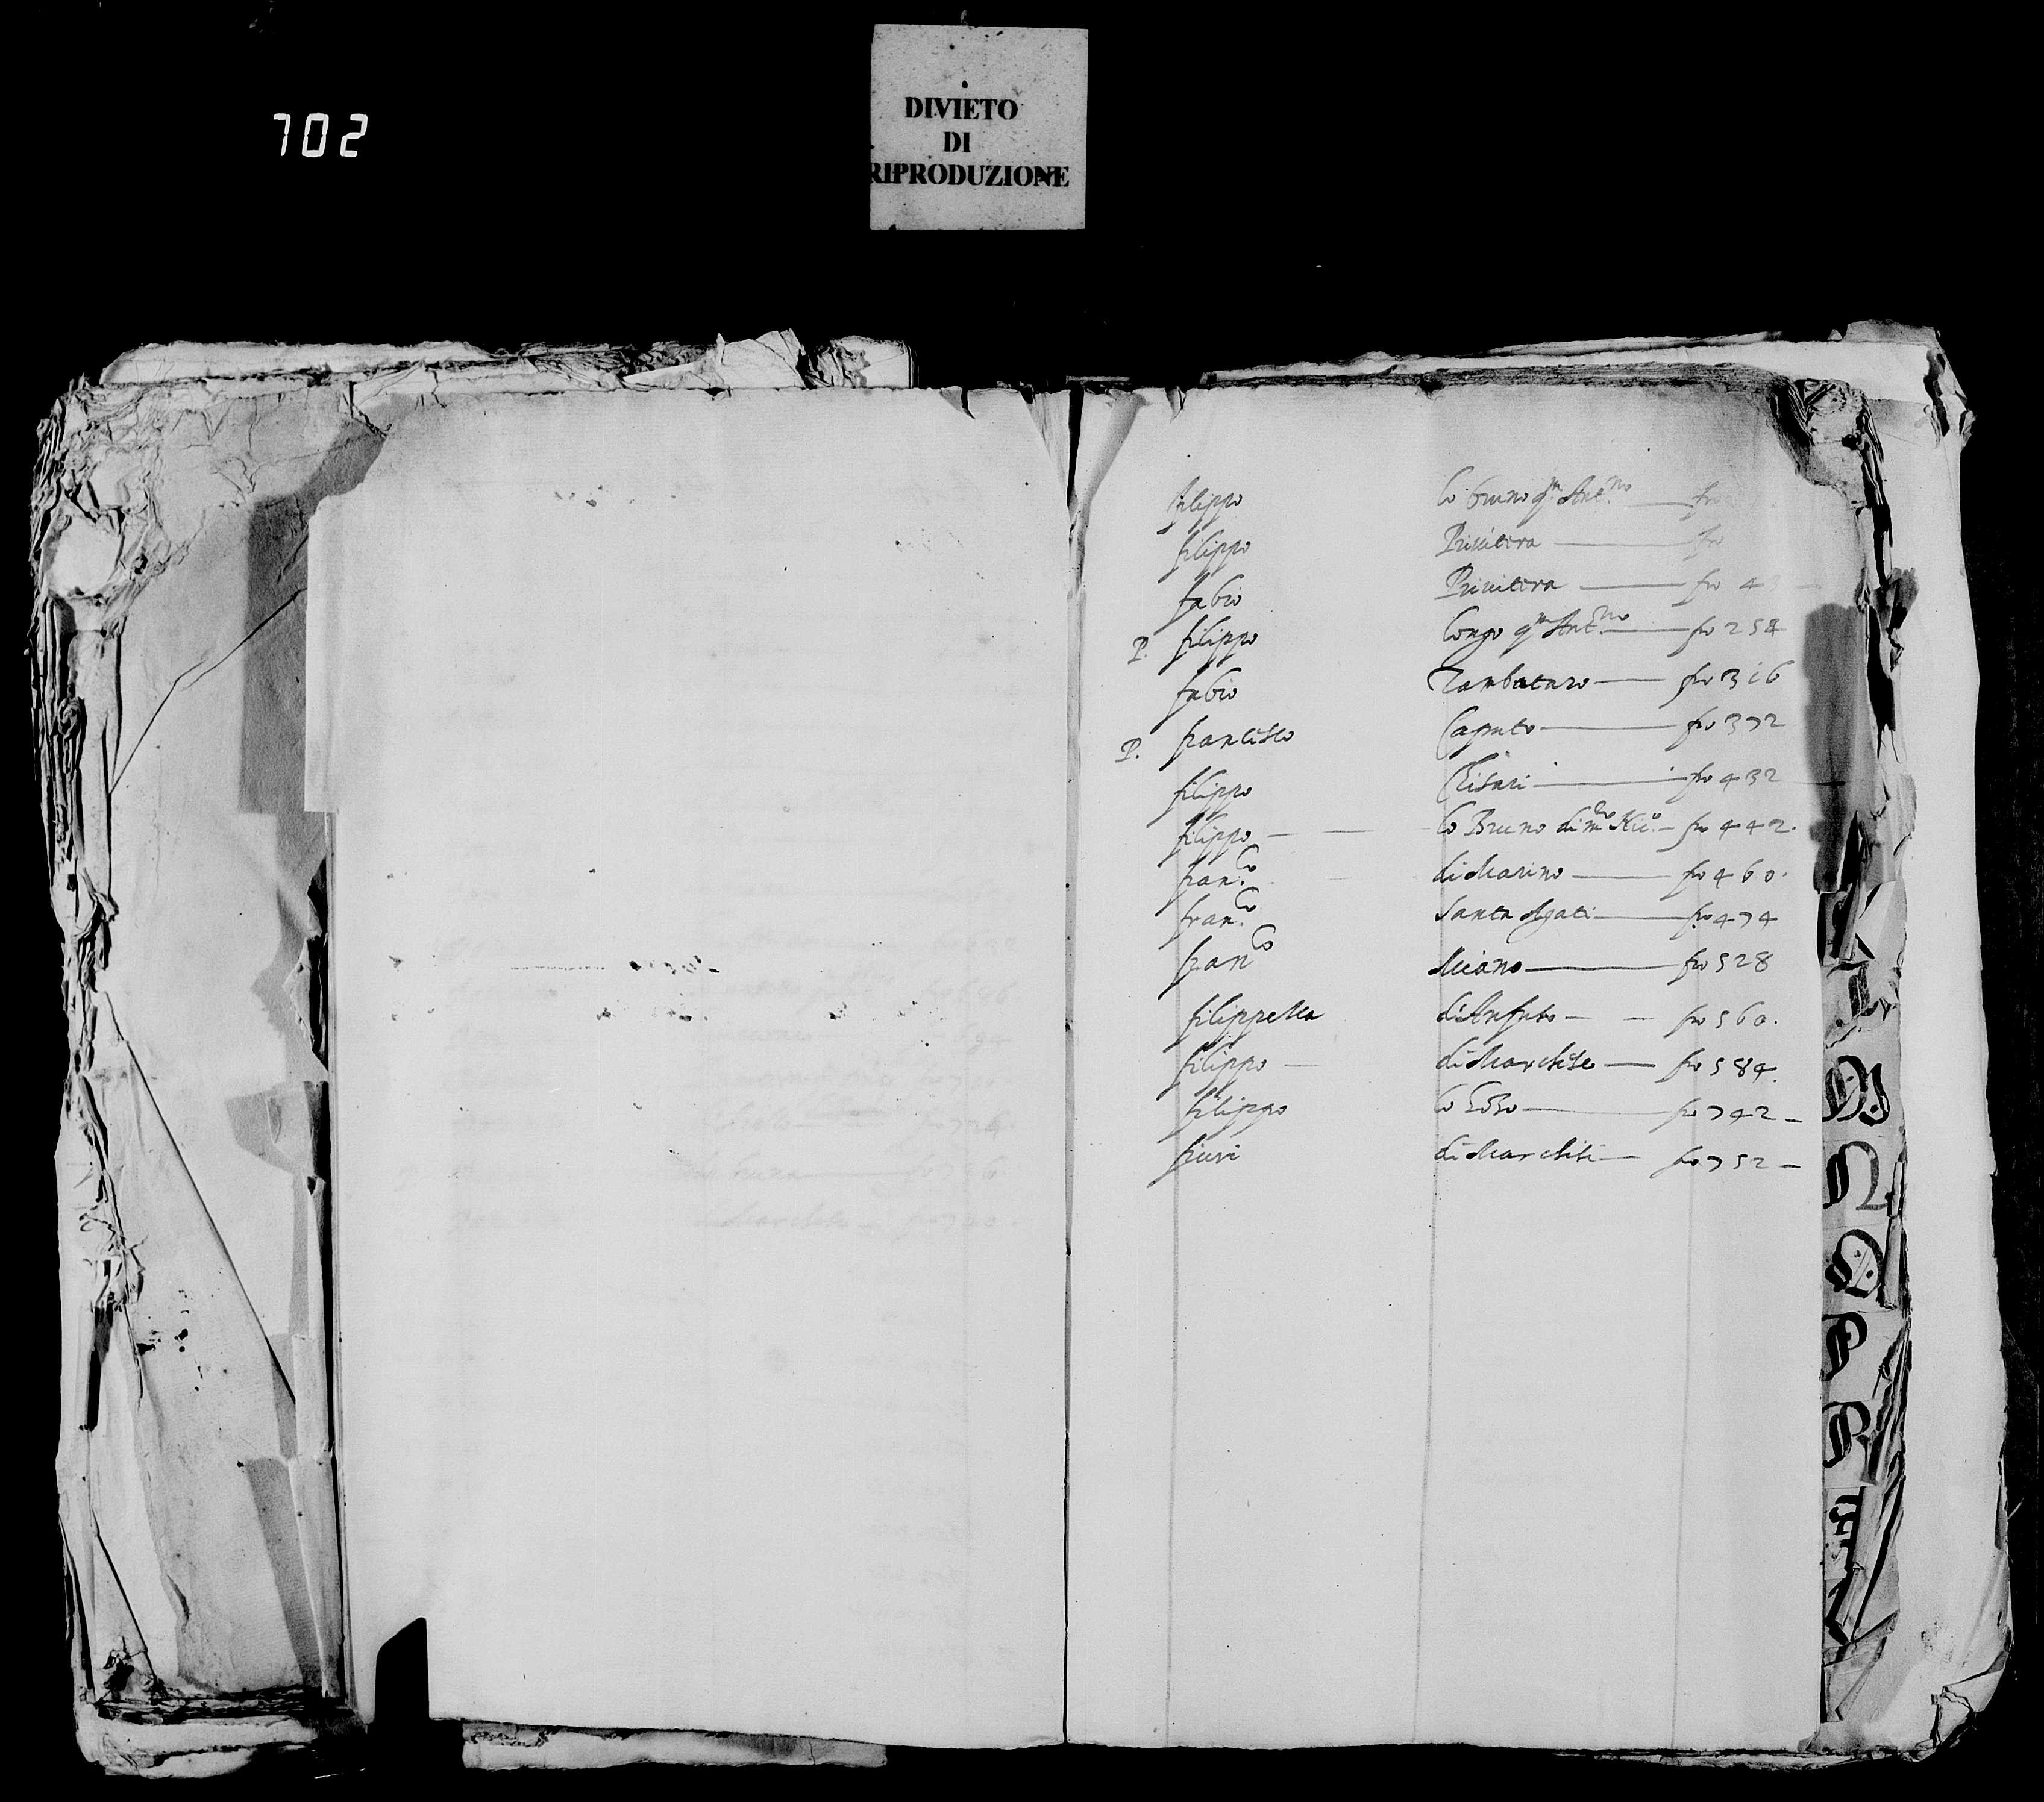 702
DIVIETO
DI
RIPRODUZIONE
filippo lo bruno qm Ant.no fro
filippo Privitera fro
fabio Privitera fro 4
P. filippo longo qm Ant.no fro 254
fabio Tambataro fro 316
P. francisco Caputo fro 372
filippo Chisari fro 432
filippo lo Bruno di m.ro fro 442.
fran.co di Marino fro 460.
fran.co Santa Agati fro 474
fran.co Miano fro 528
filippella di Anfuso fro 560.
filippo di Marchise fro 584.
filippo lo fro 742
fiuri di Marchisi fro 752
L
M
N
O
P
R